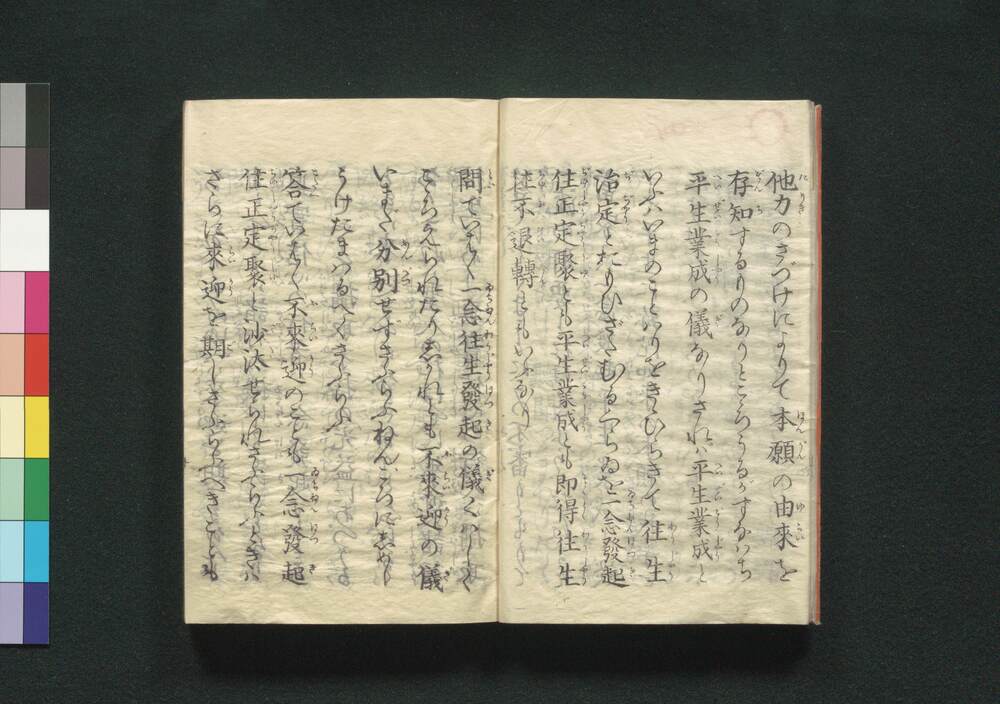 他力のさづけによりて本願の由來を
存知するものなりところうるがすなはち
平生業成の儀なりされハ平生業成と
いふハいまのことハりをきゝひらきて往生
治定とおもひさだむるくらゐを一念發起
住正定聚とも平生業成とも即得往生
住不退轉ともいふなり
問ていはく一念往生發起の儀くハしく
こゝろえられたりしかれとも不來迎の儀
いまた分別せすさふらふねんころにしめし
うけたまハるへくさふらふ
答ていはく不來迎のことも一念發起
住正定聚と沙汰せられさふらふときハ
さらに來迎を期しさふらふへきことも